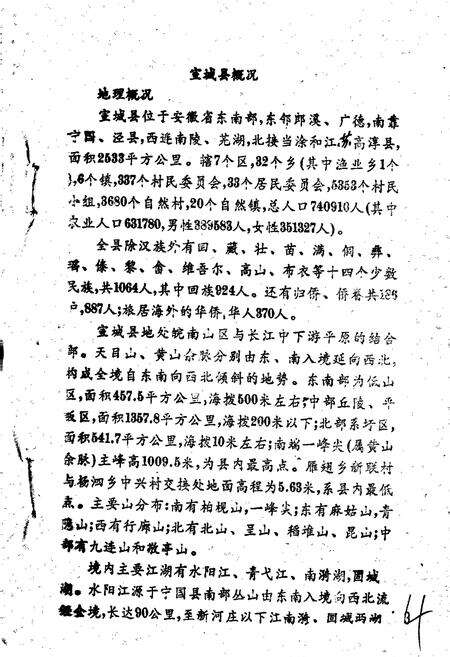 宣城县概况
地理概况
宣城县位于安徽省东南部,东邻郎溪、广德,南靠
宁国、泾县,西连南陵、芜湖,北接当涂和江苏高淳县,
面积2533平方公里。辖7个区,32个乡(其中渔业乡1个
),6个镇,337个村民委员会,33个居民委员会,5353个村民
小组,3680个自然村,20个自然镇,总人口740910人(其中
农业人口631780,男性389583人,女性351327人)。
全县除汉族外有回、藏、壮、苗、满、侗、彝、
瑶、傣、黎、畲、维吾尔、高山、布衣等十四个少数
民族,共1064人,其中回族924人。还有归侨、侨眷共
户,887人;旅居海外的华侨,华人370人。
宣城县地处皖南山区与长江中下游平原的结合
部。天目山、黄山余脉分别由东、南入境延向西北,
构成全境自东南向西北倾斜的地势。东南部为低山
区,面积457.5平方公里,海拨500米左右;中部丘陵、平
畈区,面积1357.8平方公里,海拨200米以下;北部系圩区,
面积541.7平方公里,海拨10米左右;南端一峰尖(属黄山
余脉)主峰高1009.5米,为县内最高点。雁翅乡新联村
与杨泗乡中兴村交接处地面高程为5.63米,系县内最低
点。主要山分布:南有柏枧山,一峰尖;东有麻姑山,青
隐山;西有行廊山;北有北山、呈山、稻堆山、昆山;中
部有九连山和敬亭山。
境内主要江湖有水阳江、青弋江、南漪湖,固城
湖。水阳江源于宁国县南部丛山由东南入境向西北流
经全境,长达90公里,至新河庄以下江南漪、固城两湖
64